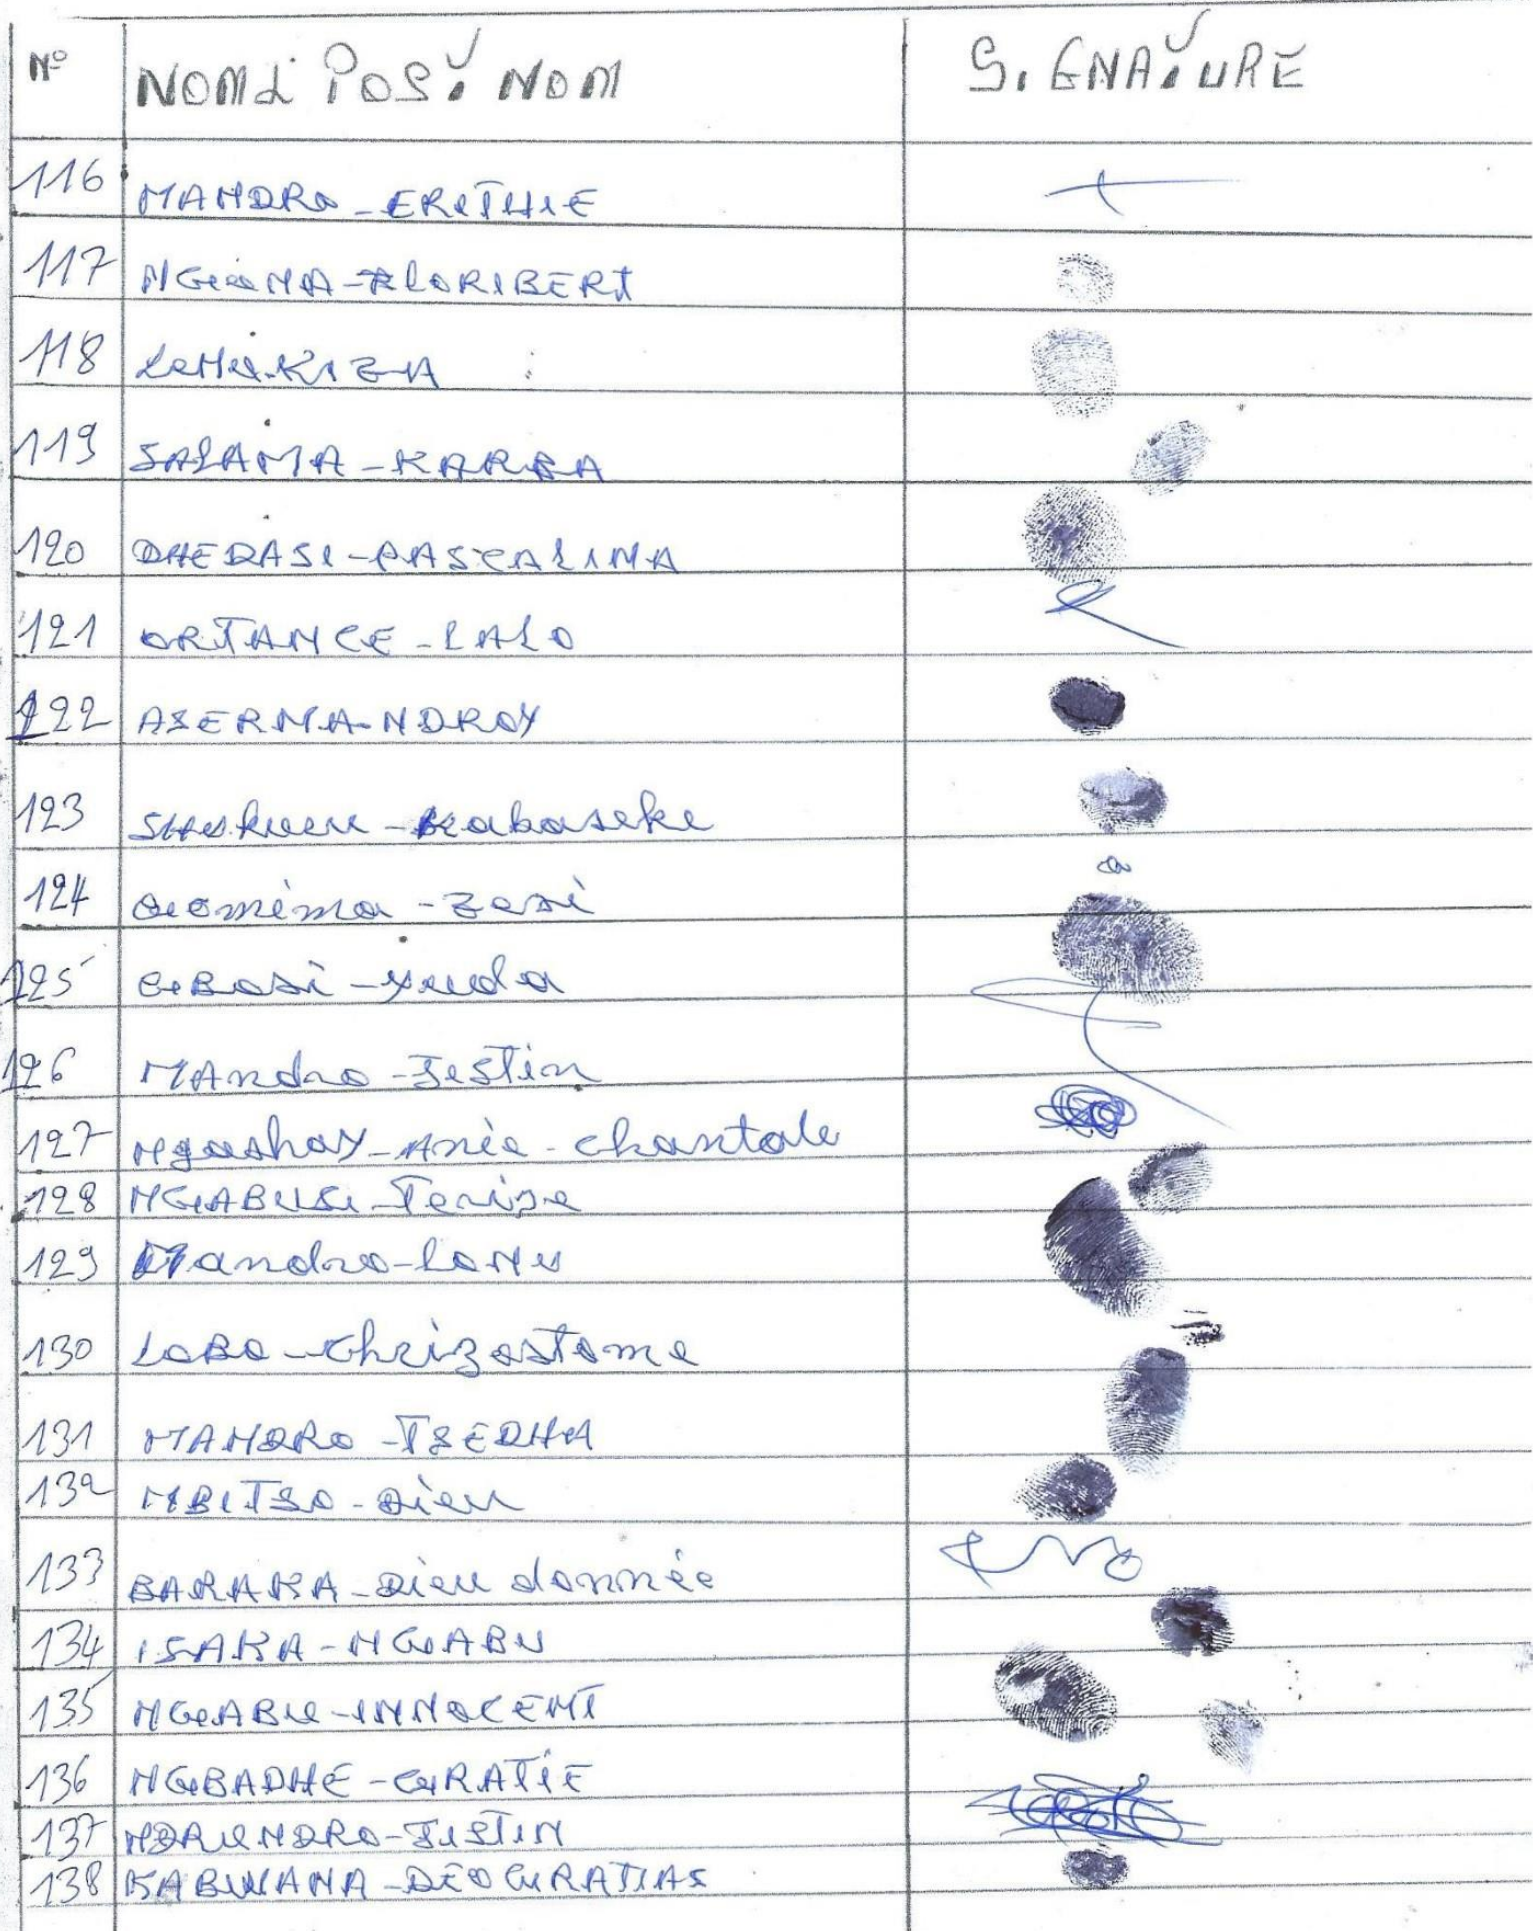 N° NOM & POST NOM SIGNATURE
116 MANDRO - ERITHIE
117 NGONA - FLORIBERT
118 KIZA
119 SALAMA - KARBA
120 DHEDASI - PASCALINA
121 ORTANCE - LALO
122 ASERMA - NDROY
123
124
125 GBASI - Yuda
126 MAndro - Jestin
127 Ngashay - Anie - chantale
128 NGABUSI - Terise
129 Mandro - LoNu
130 LOBO - Chrizostome
131 MANDRO - TSEDHA
132 MBITSO - Dieu
133 BARAKA - Dieu donnée
134 ISAKA - NGABU
135 NGABU - INNOCENT
136 NGBADHE - GRATIE
137 NDRUNDRO - JISTIN
138 KABWANA - DEOGRATIAS